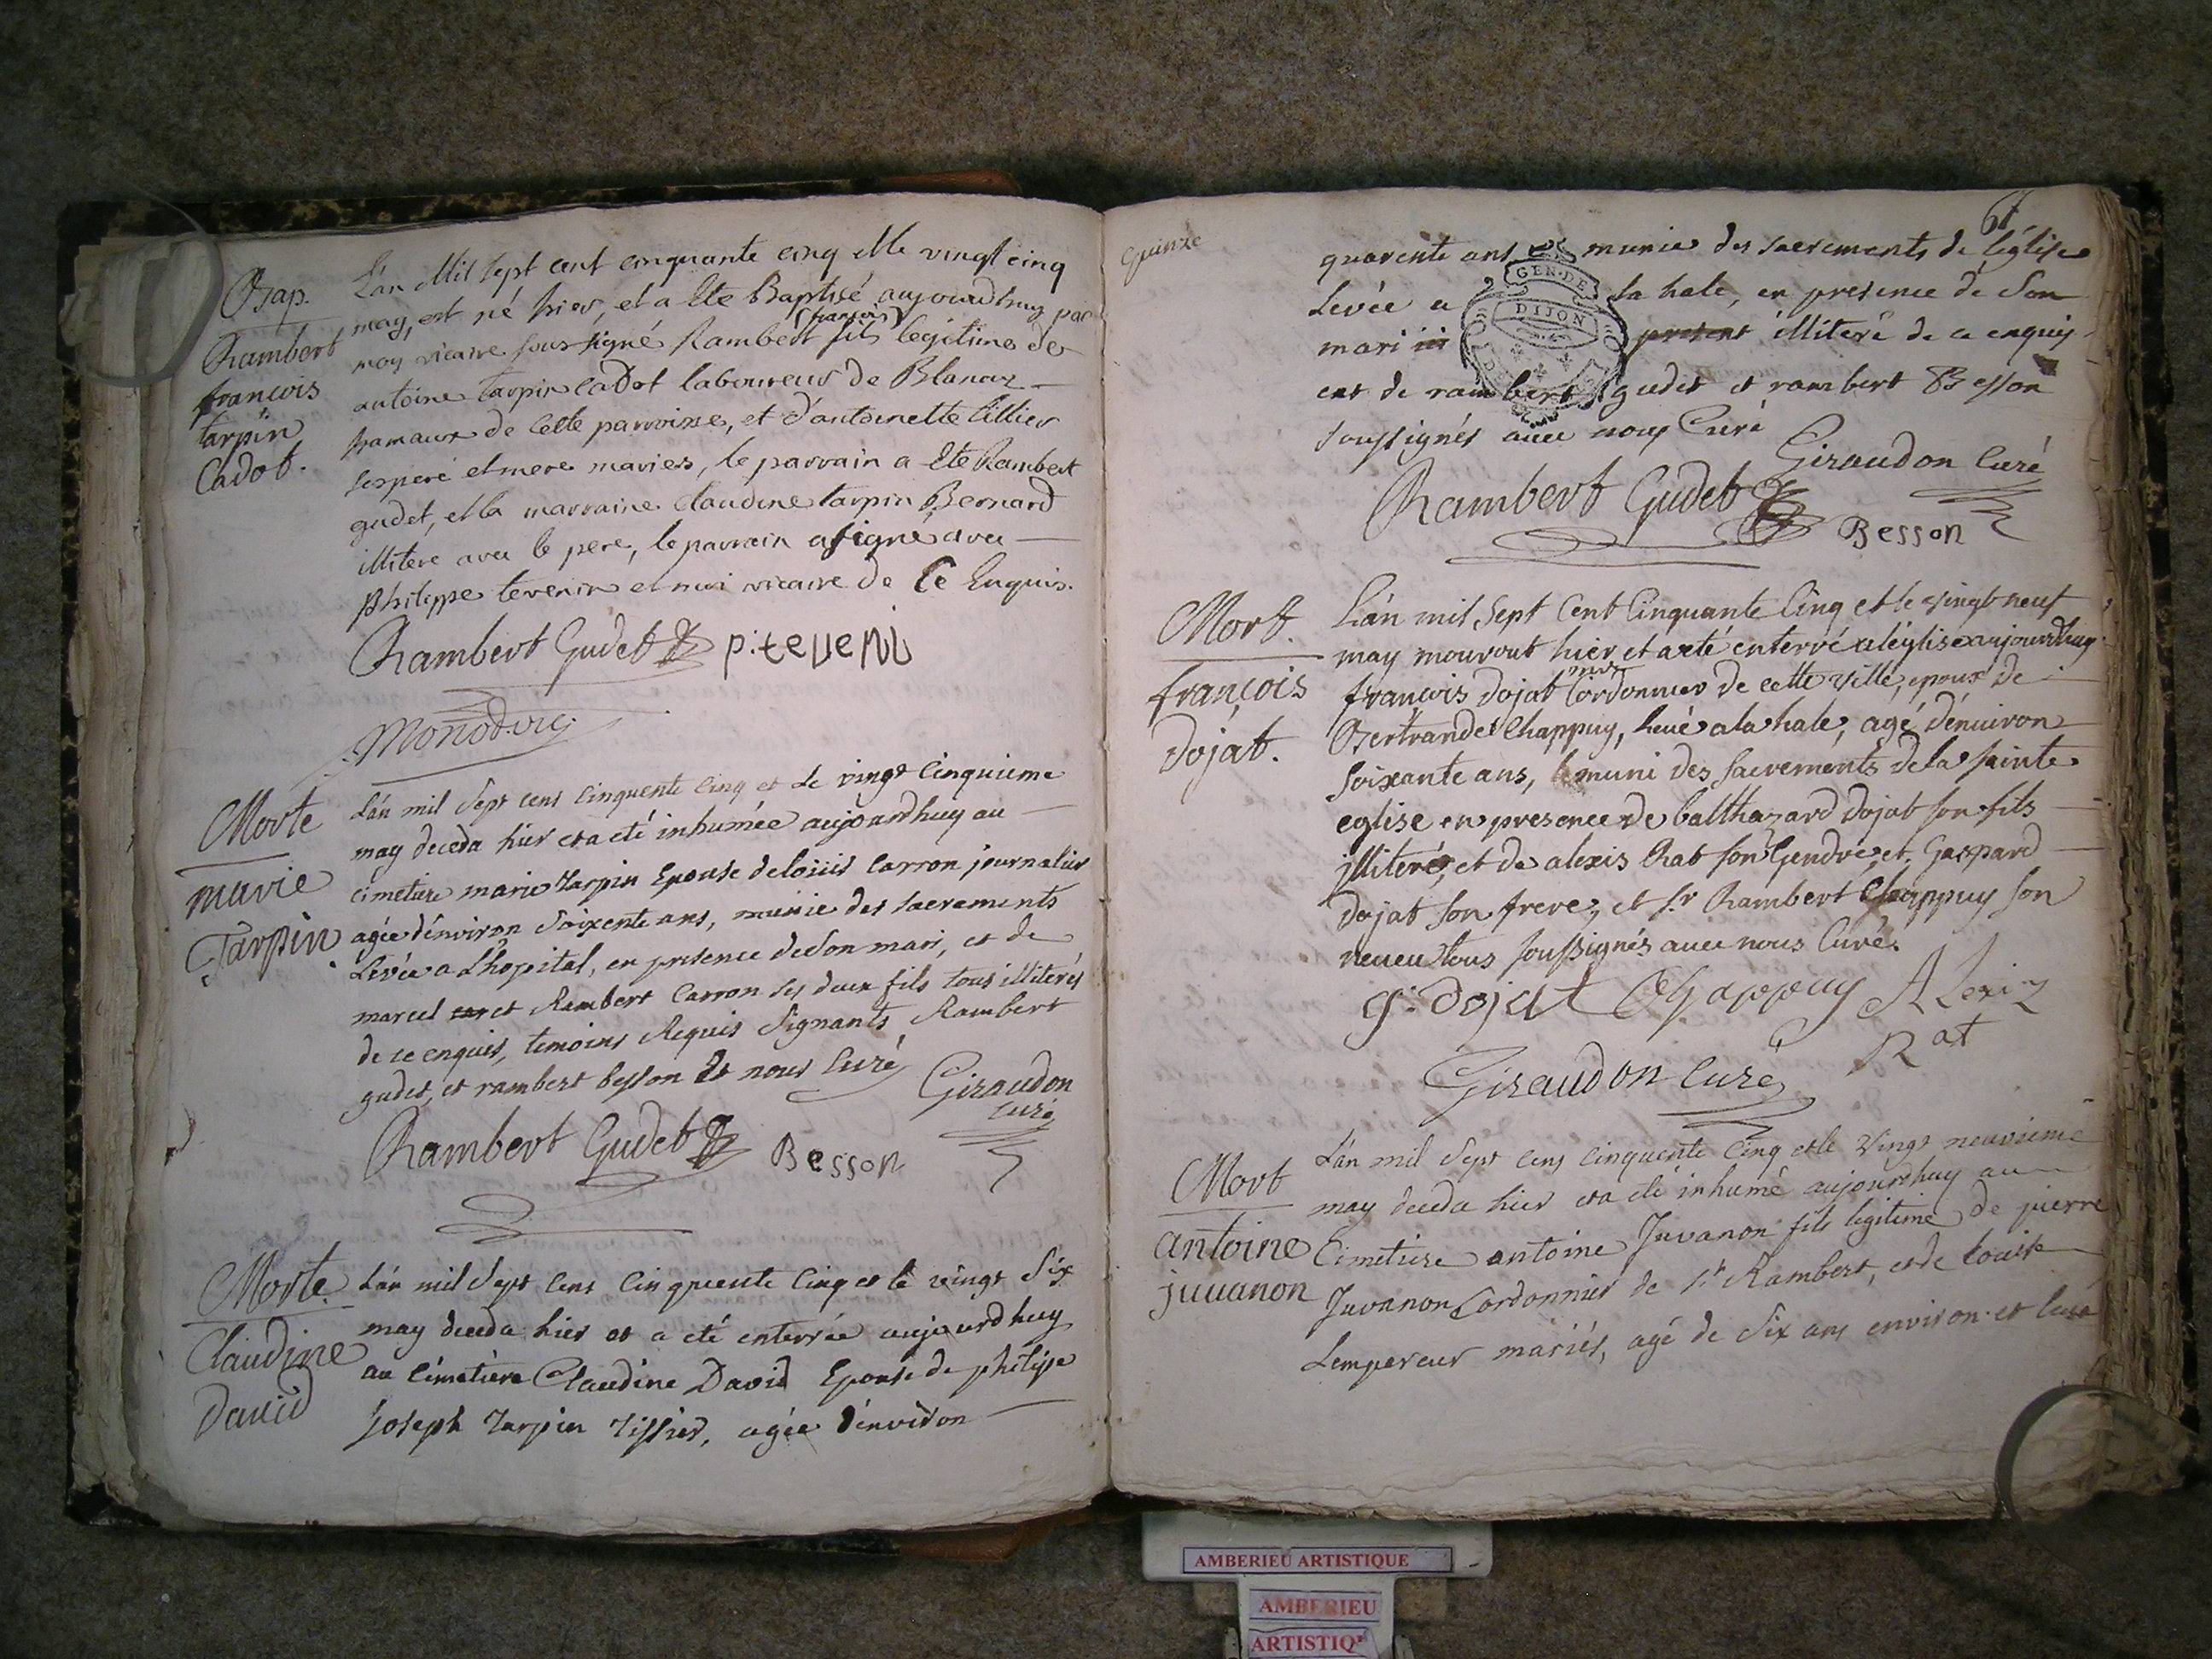 Bap.
Rambert
françois
tarpin
Cadot.
L'an Mil sept cent cinquante cinq et le vingt cinq
may, est né hier, et a ete Baptisé aujourdhuy par
moy vicaire soussigné Rambert (françois) fils legitime de
antoine tarpin Cadot laboureur de Blanaz
hamaux de Cette parroisse, et d'antoinette tillier
ses pere et mere mariés, le parrain a ete Rambert
gudet, et la marraine Claudine tarpin Bernard
illitere avec le pere, le parrain a signé avec
philippe tevenin et moi vicaire de Ce Enquis.
Rambert Gudet p: teveni
Monod vic:
Morte
marie
Tarpin
L'an mil sept cens cinquente cinq et le vingt cinquieme
may deceda hier et a eté inhumée aujourdhuy au
cimetiere marie tarpin Epouse de loüis Carron journalier
agée d'environ soixente ans, munie des sacrements
Levée a L'hopital, en presence de son mari, et de
marcel et Rambert Carron ses deux fils tous illiterés
de ce enquis, temoins Requis signants Rambert
gudet, et rambert besson et nous Curé
Giraudon
curé
Rambert Gudet Besson
Morte
Claudine
David
L'an mil sept cens cinquente cinq et le vingt six
may deceda hier et a eté enterrée aujourdhuy
au Cimetiere Claudine David Epouse de philippe
Joseph tarpin tissier, agée d'environ
quinze
67
quarente ans munie des sacrements de l'église
Levée a la hale, en presence de son
mari present illiteré de ce enquis
et de rambert gudet et rambert Besson
soussignés avec nous Curé
GEN. DE
DIJON
Giraudon Curé
Rambert Gudet Besson
Mort.
françois
dojat.
L'an mil sept Cent Cinquante Cinq et le vingt neuf
may mourout hier et a eté enterré a l'église aujourdhuy
françois dojat mtre Cordonnier de cette ville, epoux de
Bertrande Chappuy, levé a la hale, agé d'environ
soixante ans, muni des sacrements de la sainte
eglise en presence de balthazard dojat son fils
illiteré, et de alexis Rat son Gendre, et Gaspard
dojat son frere, et sr Rambert Chappuy son
neveu tous soussignés avec nous Curé.
g: dojat Chappuy Alexiz
Rat
Giraudon Curé
Mort
antoine
juvanon
L'an mil sept cens cinquente cinq et le vingt neuvieme
may deceda hier et a eté inhumé aujourdhuy au
Cimetiere antoine Juvanon fils legitime de pierre
Juvanon Cordonnier de St Rambert, et de Louise
Lempereur mariés, agé de six ans environ et levé
AMBERIEU ARTISTIQUE
AMBERIEU
ARTISTIQ